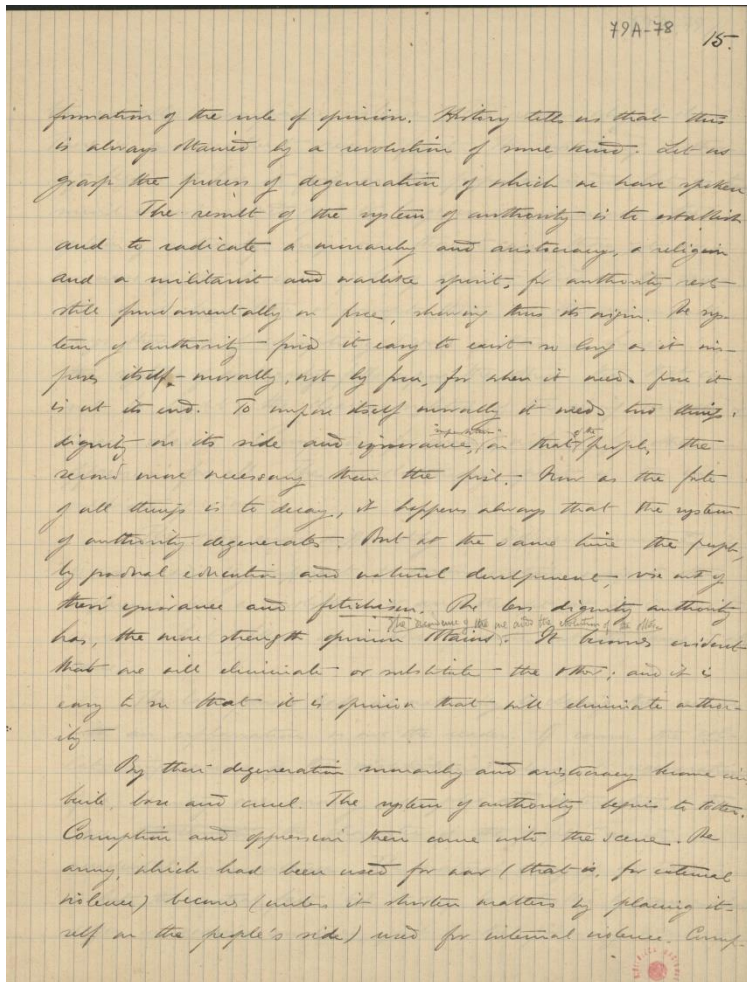 79A-78
15.
formation of the rule of opinion. History tells us that this
is always obtained by a revolution of some kind. Let us
grasp the process of degeneration of which we have spoken
The result of the system of authority is to establish
and to radicate a monarchy and aristocracy, a religion
and a militarist and warlike spirit, for authority rests
still fundamentally on force, showing thus its origin. The sys-
tem of authority finds it easy to exist so long as it im-
poses itself morally, not by force, for when it needs force it
is at its end. To impose itself morally it needs two things:
dignity on its side and ignorance, on that of the people, the
second more necessary than the first. Now as the fate
of all things is to decay, it happens always that the system
of authority degenerates. But at the same time the people,
by gradual education and natural development, rise out of
their ignorance and fetichism. The less dignity authority
The of the one aids the evolution of the other
has, the more strength opinion obtains. It becomes evident
that one will eliminate or substitute the other; and it is
easy to see that it is opinion that will eliminate author-
ity.
By their degeneration monarchy and aristocracy become
base and cruel. The system of authority begins to totter.
Corruption and oppression then come into the scene. The
army, which had been used for war (that is, for external
violence) becomes (unless it shortens matters by placing it-
self on the people's side) used for internal violence.